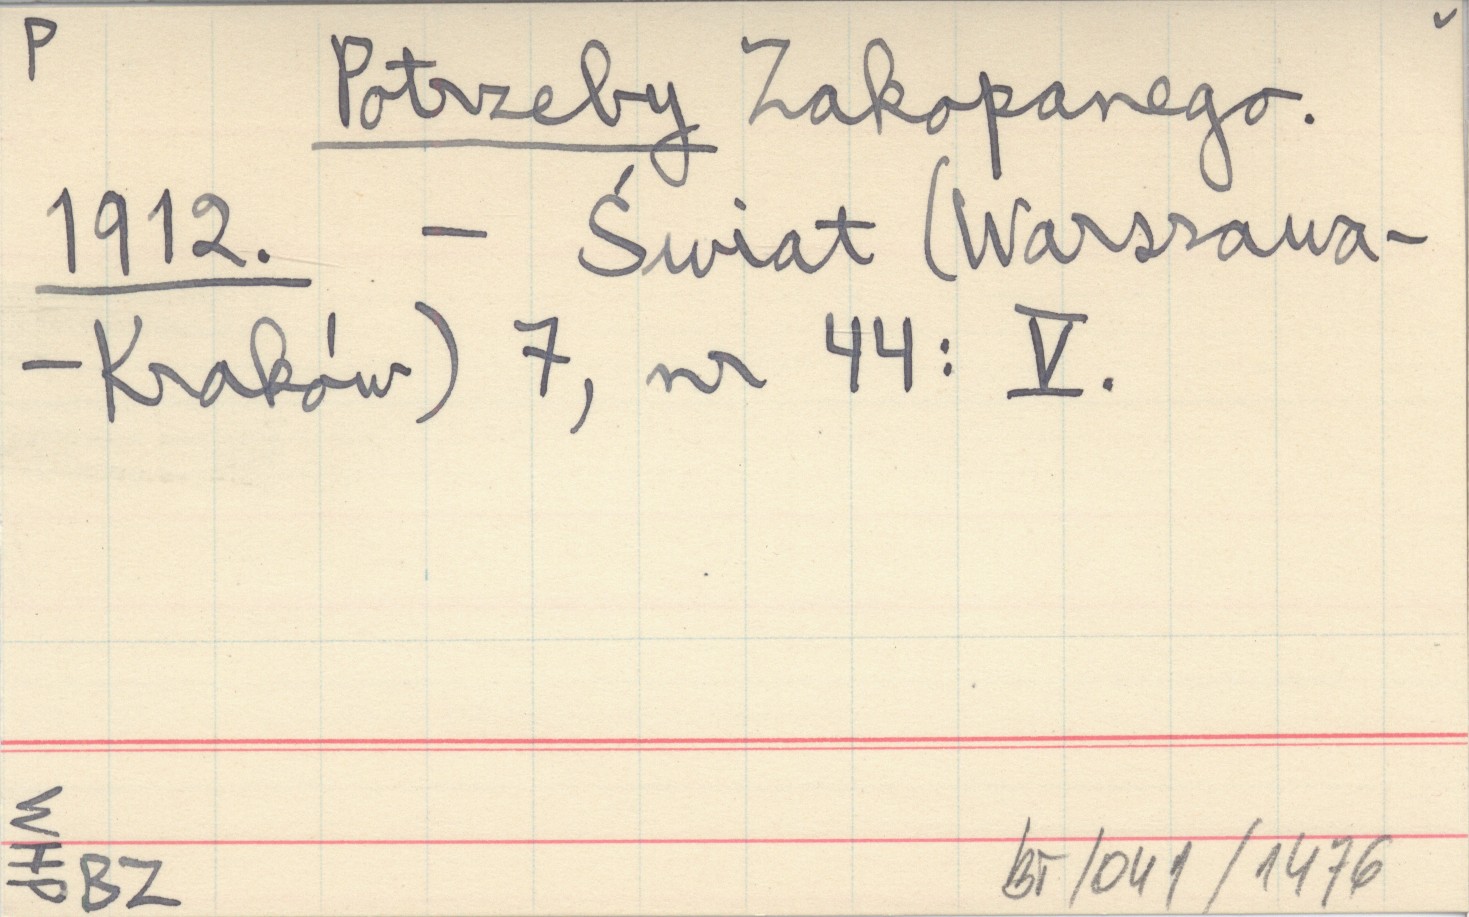 P
Potrzeby Zakopanego.
1912. - Świat (Warszawa-
-Kraków) 7, nr 44: V.
WHP
BZ
BT/041/1476